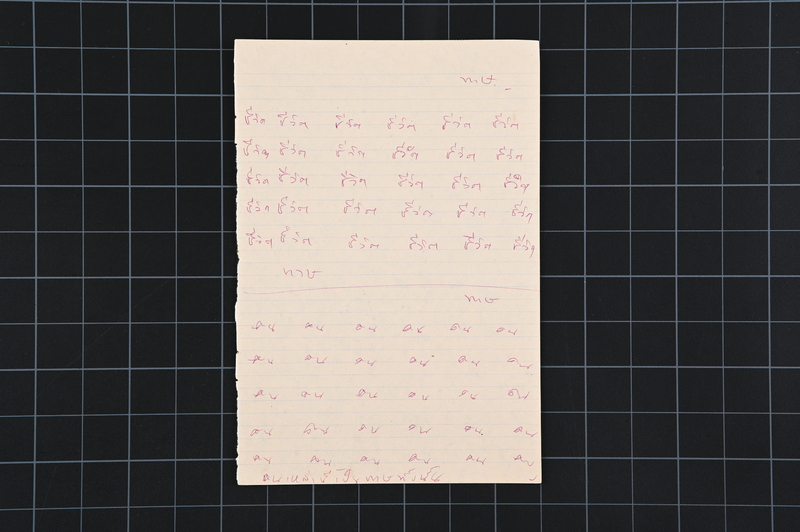 ทาษ.
ชีวิต ชีวิต ชีวิต ชีวิต ชีวิต ชีวิต
ชีวิต ชีวิต ชีวิต ชีวิต ชีวิต ชีวิต
ชีวิต ชีวิต ชีวิต ชีวิต ชีวิต ชีวิต
ชีวิต ชีวิต ชีวิต ชีวิต ชีวิต ชีวิต
ชีวิต ชีวิต ชีวิต ชีวิต ชีวิต ชีวิต
ทาษ
ทาษ
คน คน คน คน คน คน
คน คน คน คน คน คน
คน คน คน คน คน คน
คน คน คน คน คน คน
คน คน คน คน คน คน
คนเหล่านี้เป็นทาษทั้งนั้น